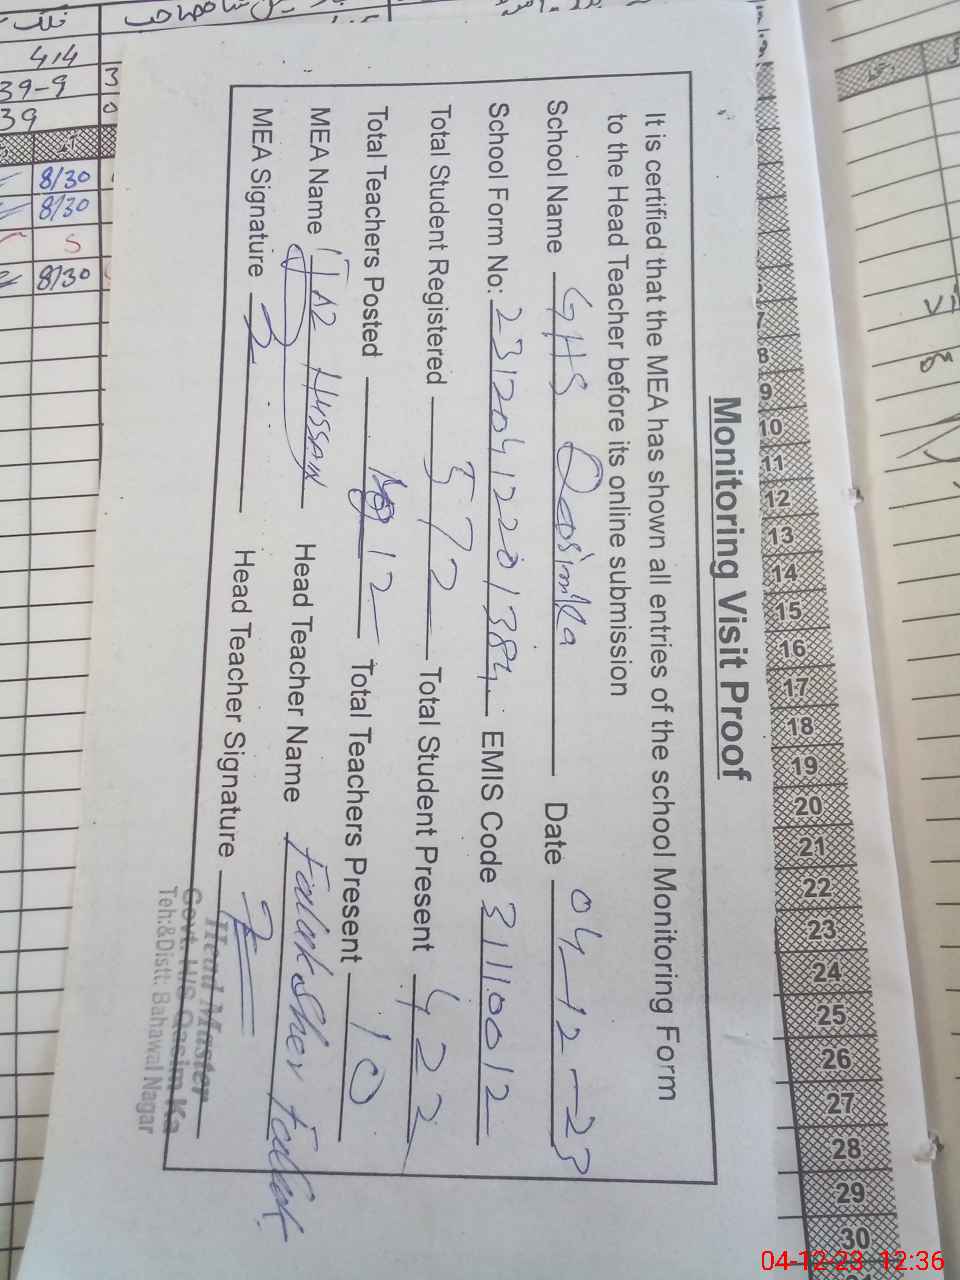 Monitoring Visit Proof
It is certified that the MEA has shown all entries of the school Monitoring Form
to the Head Teacher before its online submission
School Name GHS Qasimka Date 04-12-23
School Form No: 23120412201384 EMIS Code 31110012
Total Student Registered 572 Total Student Present 422
Total Teachers Posted 12 Total Teachers Present 10
MEA Name Ijaz Hussain Head Teacher Name Falak Sher Falak
MEA Signature Head Teacher Signature
Head Master
Govt. H/S Qasim Ka
Teh:&Distt. Bahawal Nagar
8 9 10 11 12 13 14 15 16 17 18 19 20 21 22 23 24 25 26 27 28 29 30
414
39-9
39
8/30
8/30
S
8/30
04-12-23 12:36